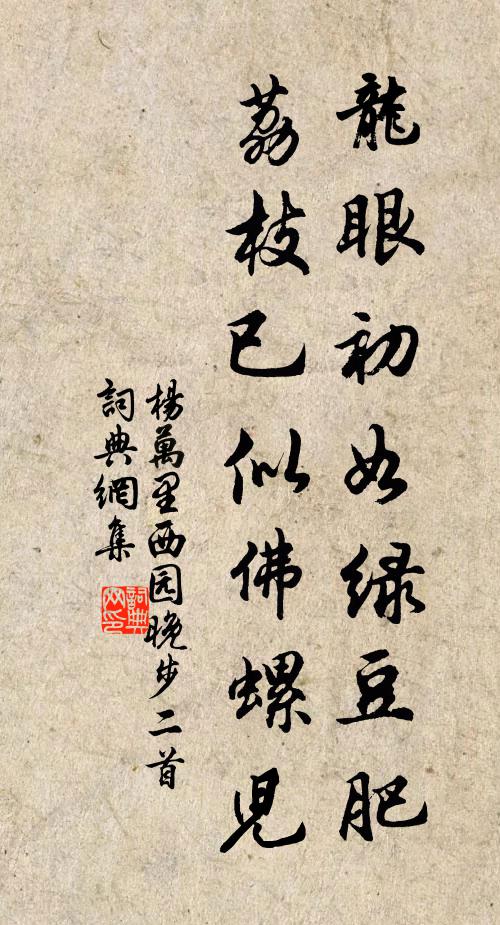 龍眼初如緑豆肥
荔枝已似佛螺兒
楊萬里西园晚步二首
詞典網集
詞典网印